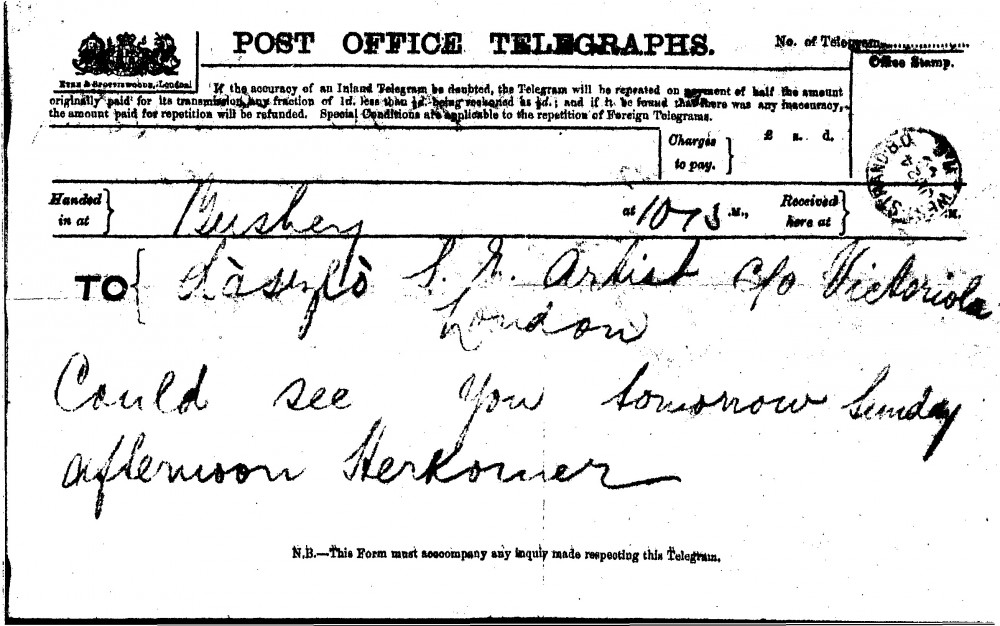 POST OFFICE TELEGRAPHS.
No. of Telegram
Office Stamp.
EYRE & SPOTTISWOODE, London
If the accuracy of an Inland Telegram be doubted, the Telegram will be repeated on payment of half the amount
originally paid for its transmission, any fraction of 1d. less than ½d. being reckoned as ½d.; and if it be found that there was any inaccuracy,
the amount paid for repetition will be refunded. Special Conditions are applicable to the repetition of Foreign Telegrams.
Charges to pay. £ s. d.
Handed in at Bushey at 10 .M., Received here at .M.
TO Làszlò Artist c/o Victoriola
London
Could see you tomorrow Sunday
afternoon Herkomer
N.B.—This Form must accompany any inquiry made respecting this Telegram.